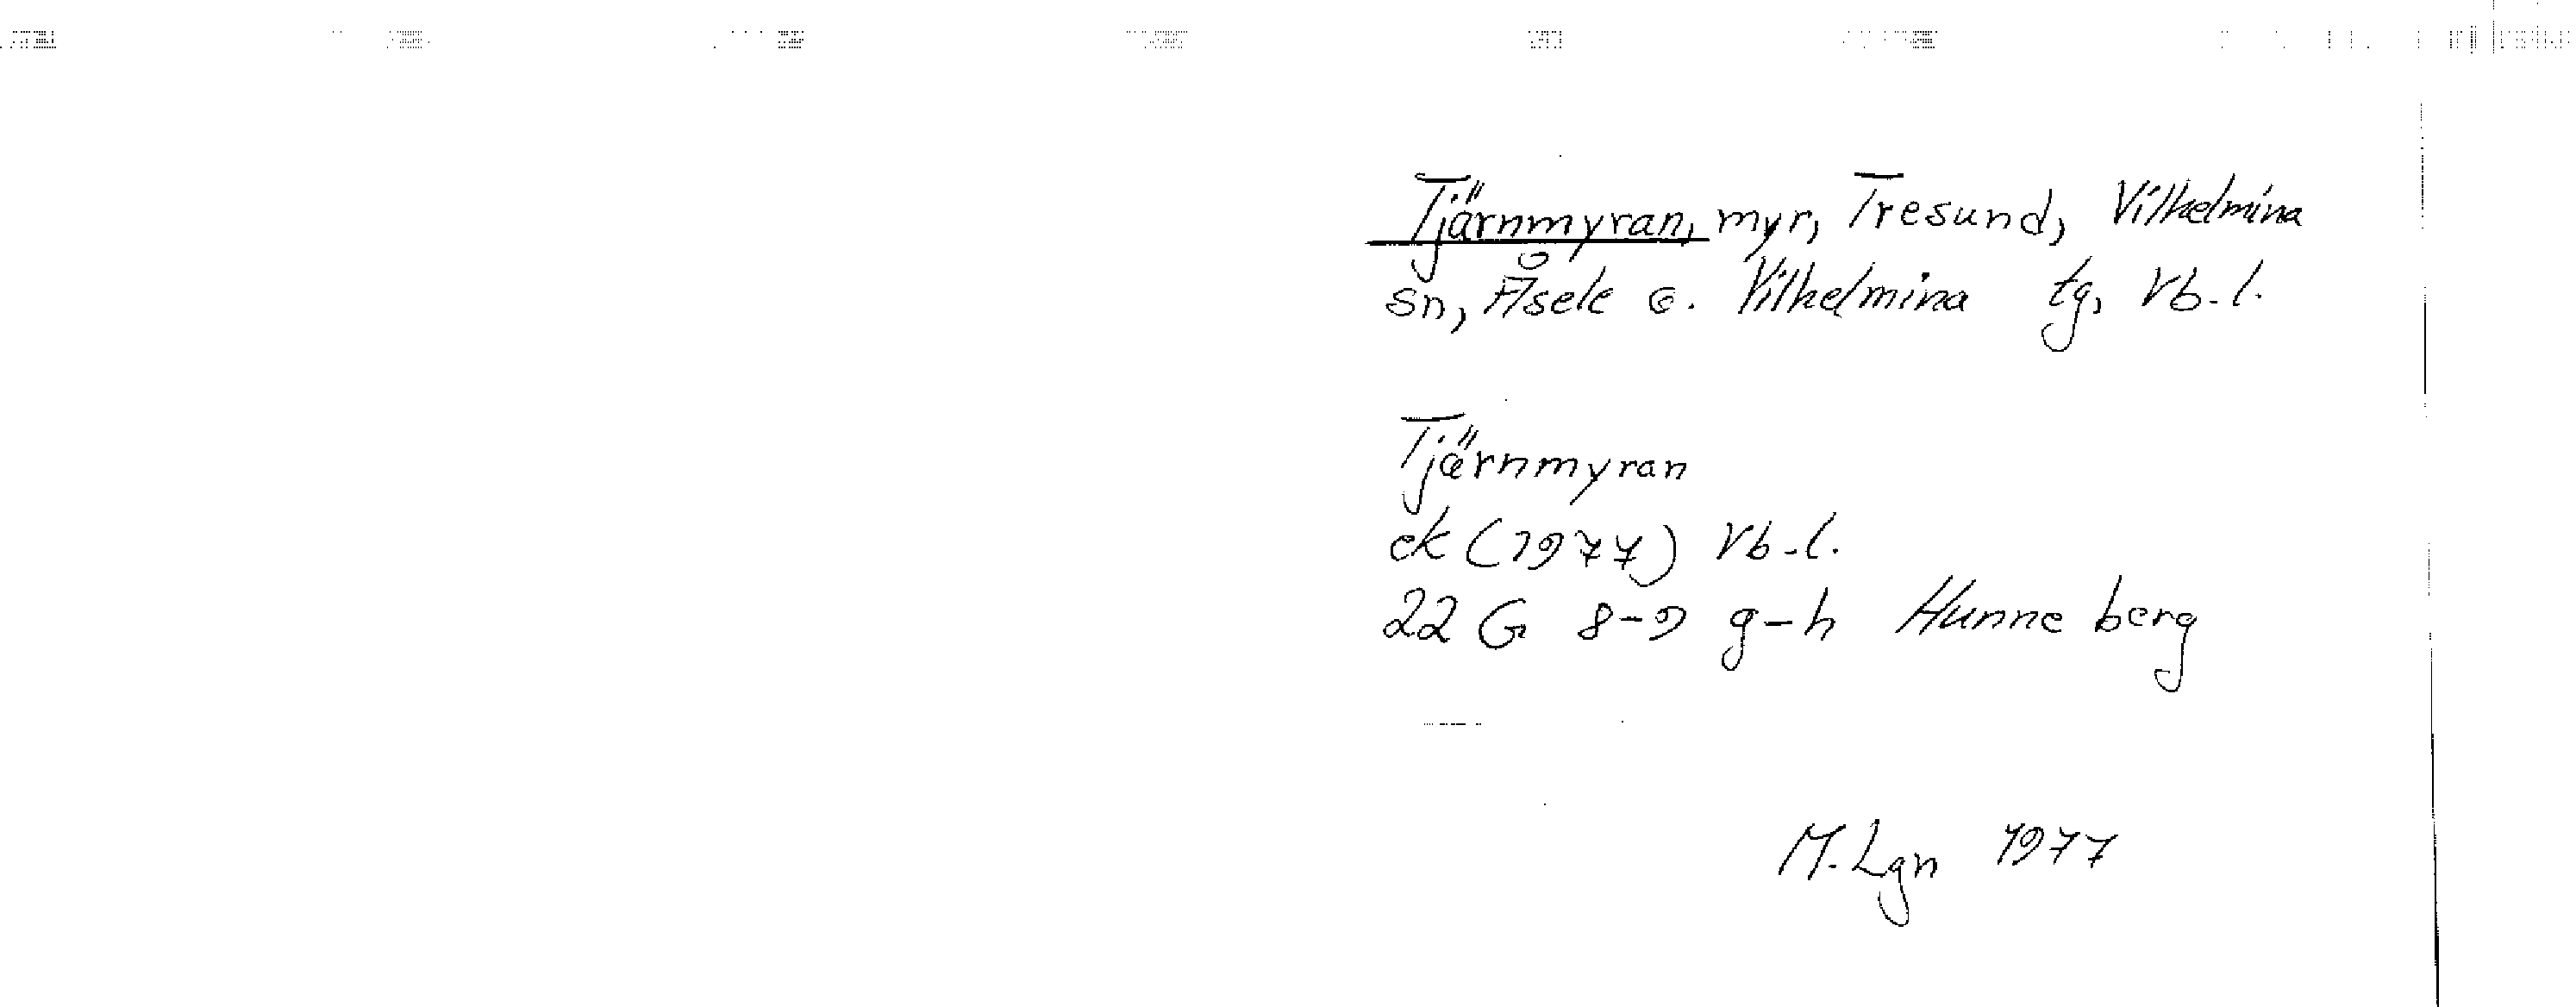 Tjärnmyran, myr, Tresund, Vilhelmina
sn, Åsele o. Vilhelmina tg, Vb.l.
Tjärnmyran
ek (1977) Vb.l.
22 G 8-9 g-h Hunneberg
M. Lgn 1977